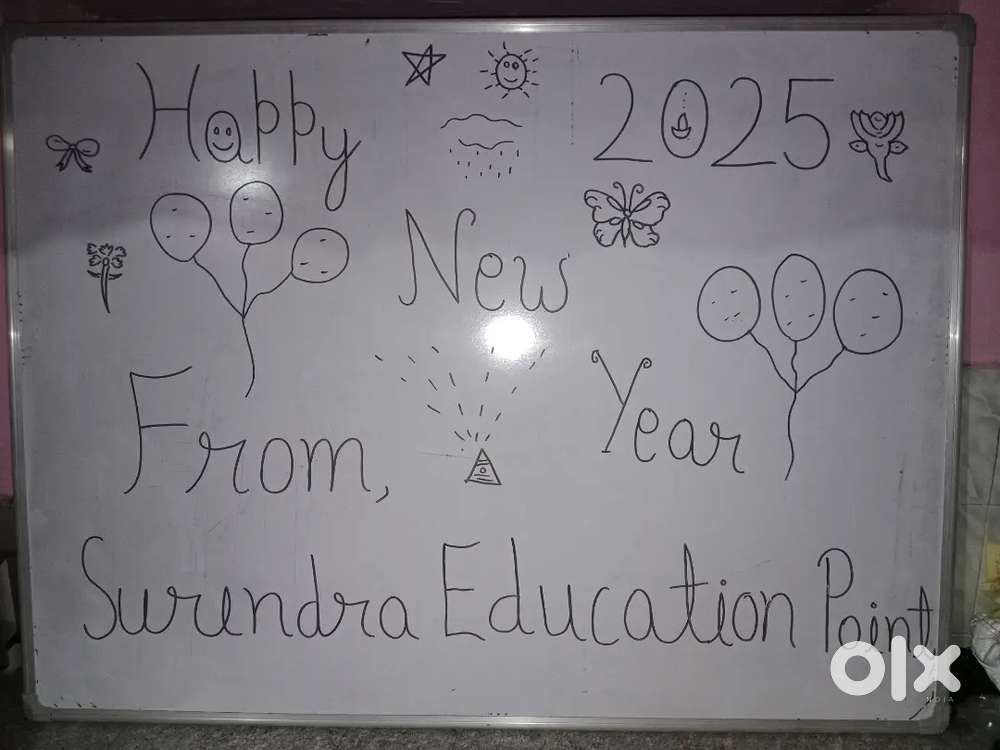 Happy 2025
New
Year
From,
Surendra Education Point
olx
INDIA